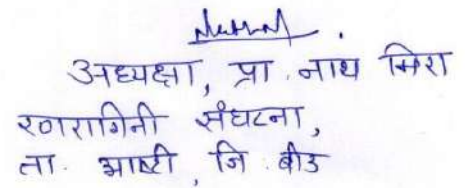 अध्यक्षा, प्रा. नाथ मिरा
रणरागिनी संघटना,
ता. आष्टी, जि. बीड